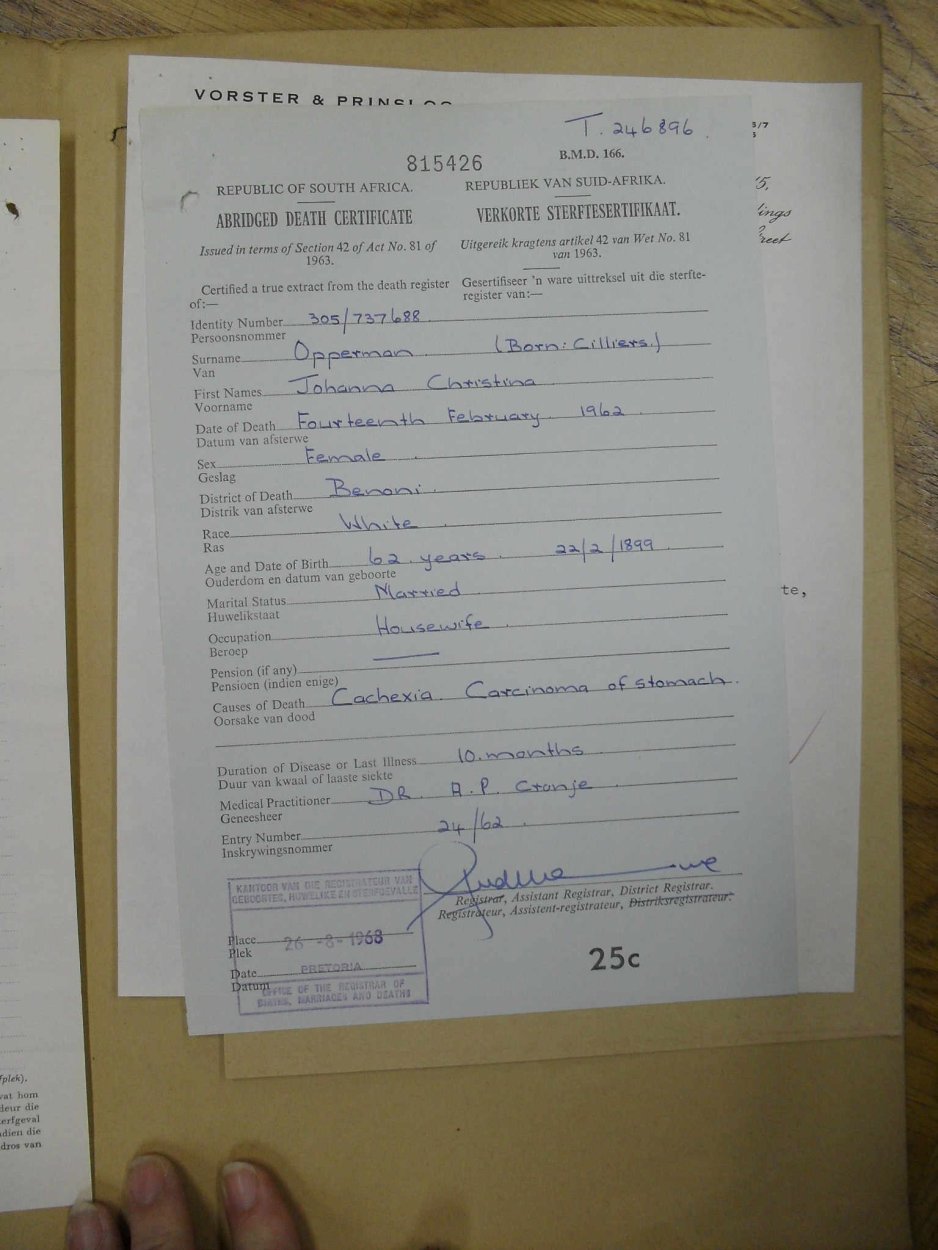 VORSTER & PRINSLOO
T. 246896.
5/7
815426
B.M.D. 166.
REPUBLIC OF SOUTH AFRICA.
REPUBLIEK VAN SUID-AFRIKA.
ABRIDGED DEATH CERTIFICATE
VERKORTE STERFTESERTIFIKAAT.
Issued in terms of Section 42 of Act No. 81 of
1963.
Uitgereik kragtens artikel 42 van Wet No. 81
van 1963.
Certified a true extract from the death register
of:—
Gesertifiseer 'n ware uittreksel uit die sterfte-
register van:—
Identity Number 305/737688
Persoonsnommer
Surname Opperman (Born: Cilliers.)
Van
First Names Johanna Christina
Voorname
Date of Death Fourteenth February 1962.
Datum van afsterwe
Sex Female.
Geslag
District of Death Benoni.
Distrik van afsterwe
Race White.
Ras
Age and Date of Birth 62. years. 22/2/1899.
Ouderdom en datum van geboorte
Marital Status Married
Huwelikstaat
Occupation Housewife.
Beroep
Pension (if any)
Pensioen (indien enige)
Causes of Death Cachexia. Carcinoma of stomach.
Oorsake van dood
Duration of Disease or Last Illness 10.months
Duur van kwaal of laaste siekte
Medical Practitioner DR. A.P. Cronje.
Geneesheer
Entry Number 24/62.
Inskrywingsnommer
Registrar, Assistant Registrar, District Registrar.
Registrateur, Assistent-registrateur, Distriksregistrateur.
KANTOOR VAN DIE REGISTRATEUR VAN
GEBOORTES, HUWELIKE EN STERFGEVALLE
Place 26 -8- 1968
Plek
Date PRETORIA
Datum
OFFICE OF THE REGISTRAR OF
BIRTHS, MARRIAGES AND DEATHS
25c
te,
fplek).
vat hom
deur die
erfgeval
dien die
dros van